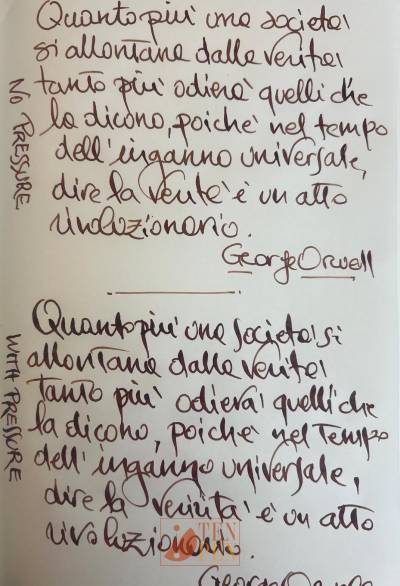 Quanto più una società
si allontana dalla verità
tanto più odierà quelli che
la dicono, poiché nel tempo
dell'inganno universale,
dire la verità è un atto
rivoluzionario.
George Orwell
NO PRESSURE
Quanto più una società si
allontana dalla verità
tanto più odierà quelli che
la dicono, poiché nel tempo
dell'inganno universale,
dire la verità è un atto
rivoluzionario.
George Orwell
WITH PRESSURE
TEN